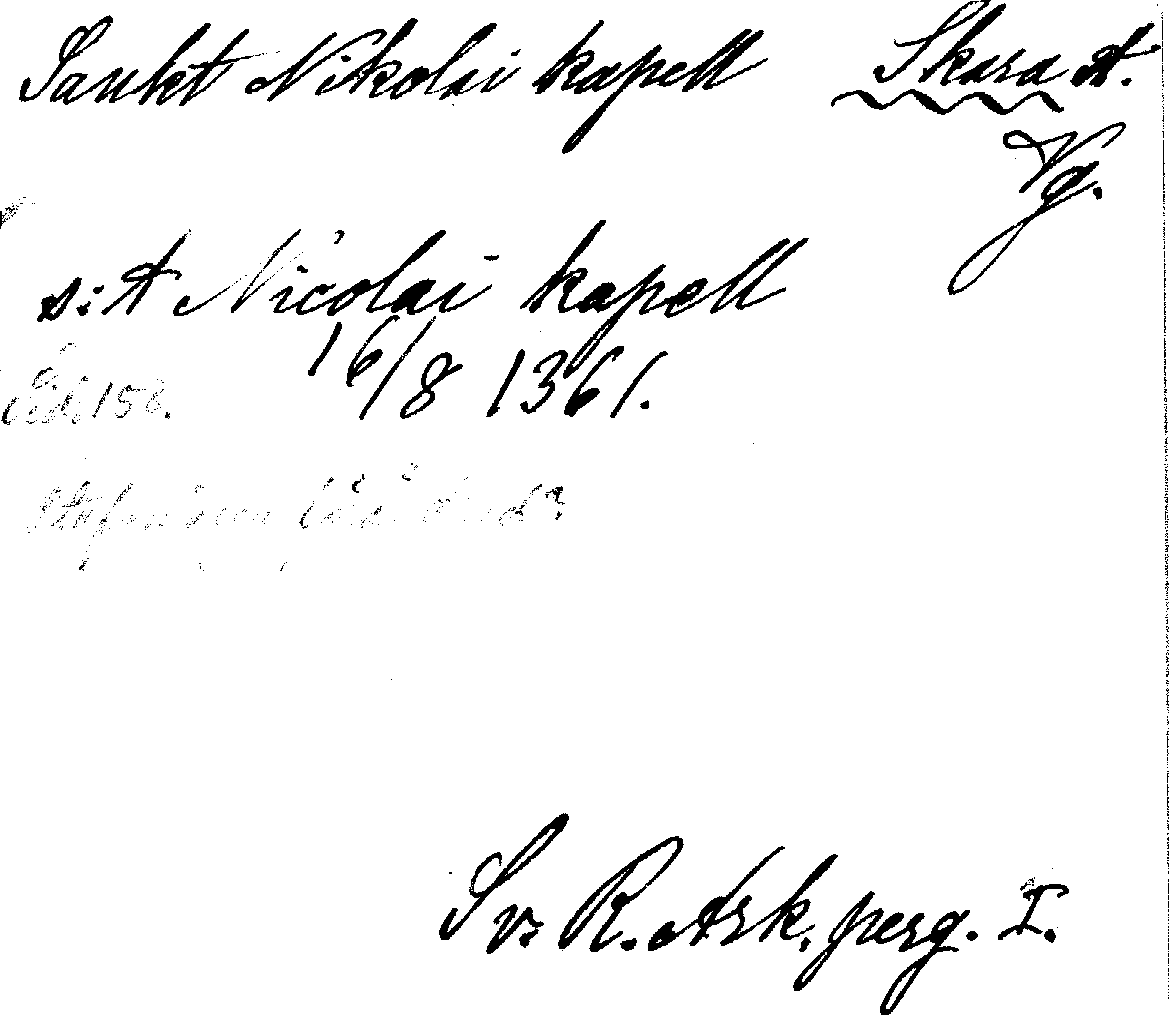 Sankt Nikolai kapell Skara st.
Vg.
s:t Nicolai kapell
16/8 1361.
Sid. 158.
Sv. R. Ark. perg. I.